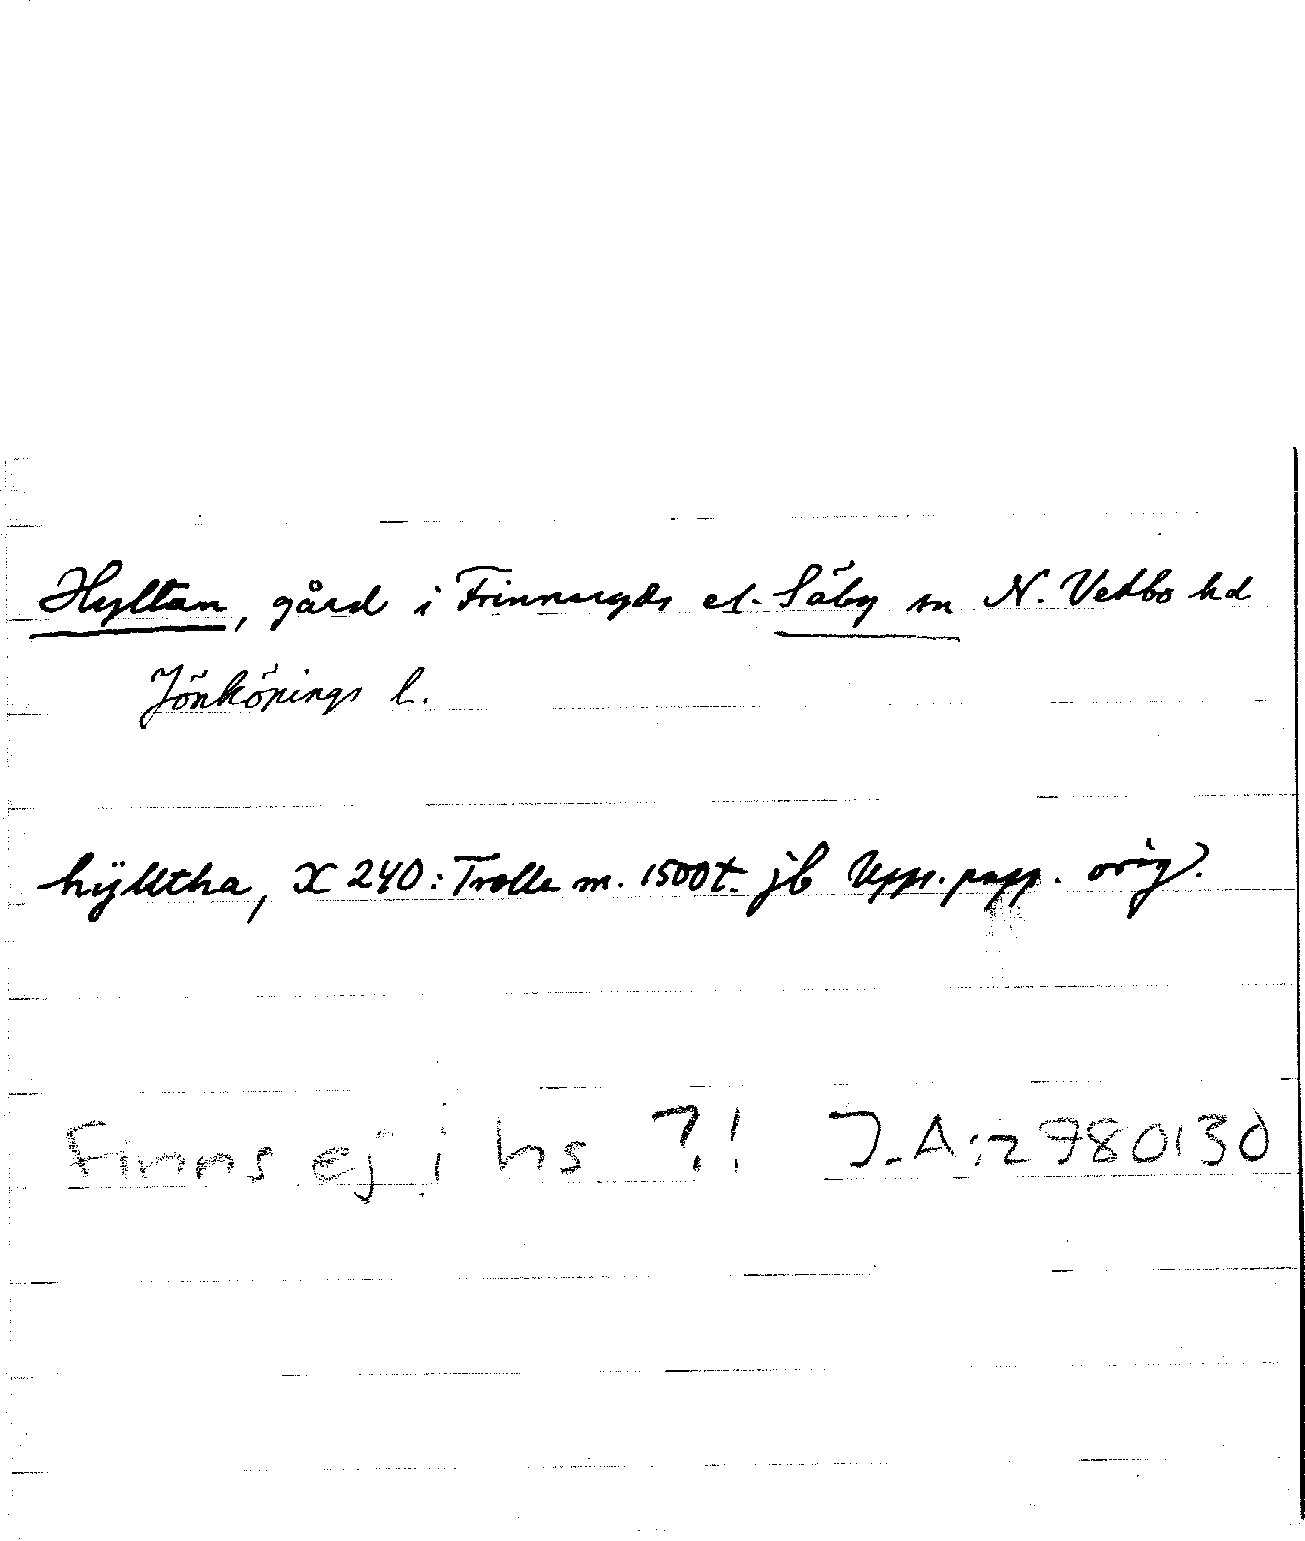 Hyltan, gård i Frinnaryds el. Säby sn N. Vedbo hd
Jönköpings l.
hÿlltha, X 240: Trolle m. 1500t. jb Upps. papp. orig.
Finns ej i hs ?! J.A:2780130